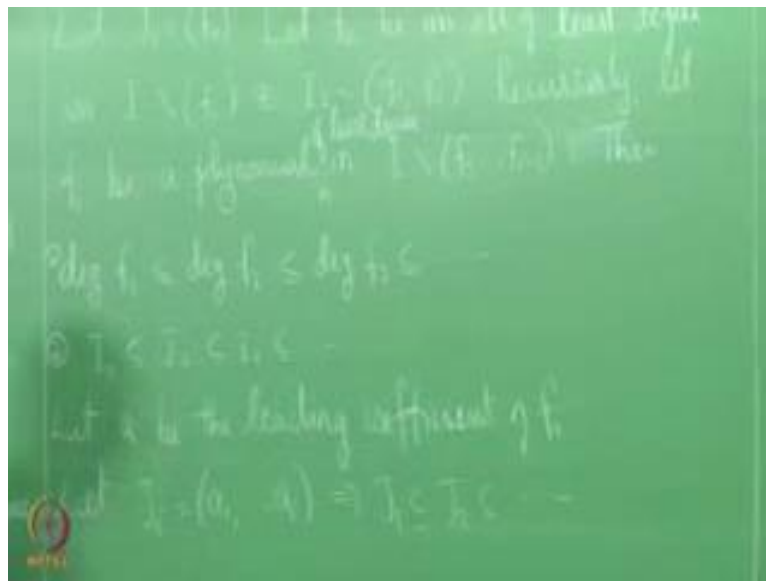 Let I₁ = (f₁) Let f₂ be an elt of least degree
in I \ (f₁) I₂ = (f₁, f₂) Recursively, let
of least degree
fᵢ be a polynomial in I \ (f₁ … fᵢ₋₁) Then
① deg f₁ ≤ deg f₂ ≤ deg f₃ ≤ ⋯
② I₁ ⊆ I₂ ⊆ I₃ ⊆ ⋯
Let aᵢ be the leading coefficient of fᵢ
Let Jᵢ = (a₁, … aᵢ) ⇒ J₁ ⊆ J₂ ⊆ ⋯
NPTEL